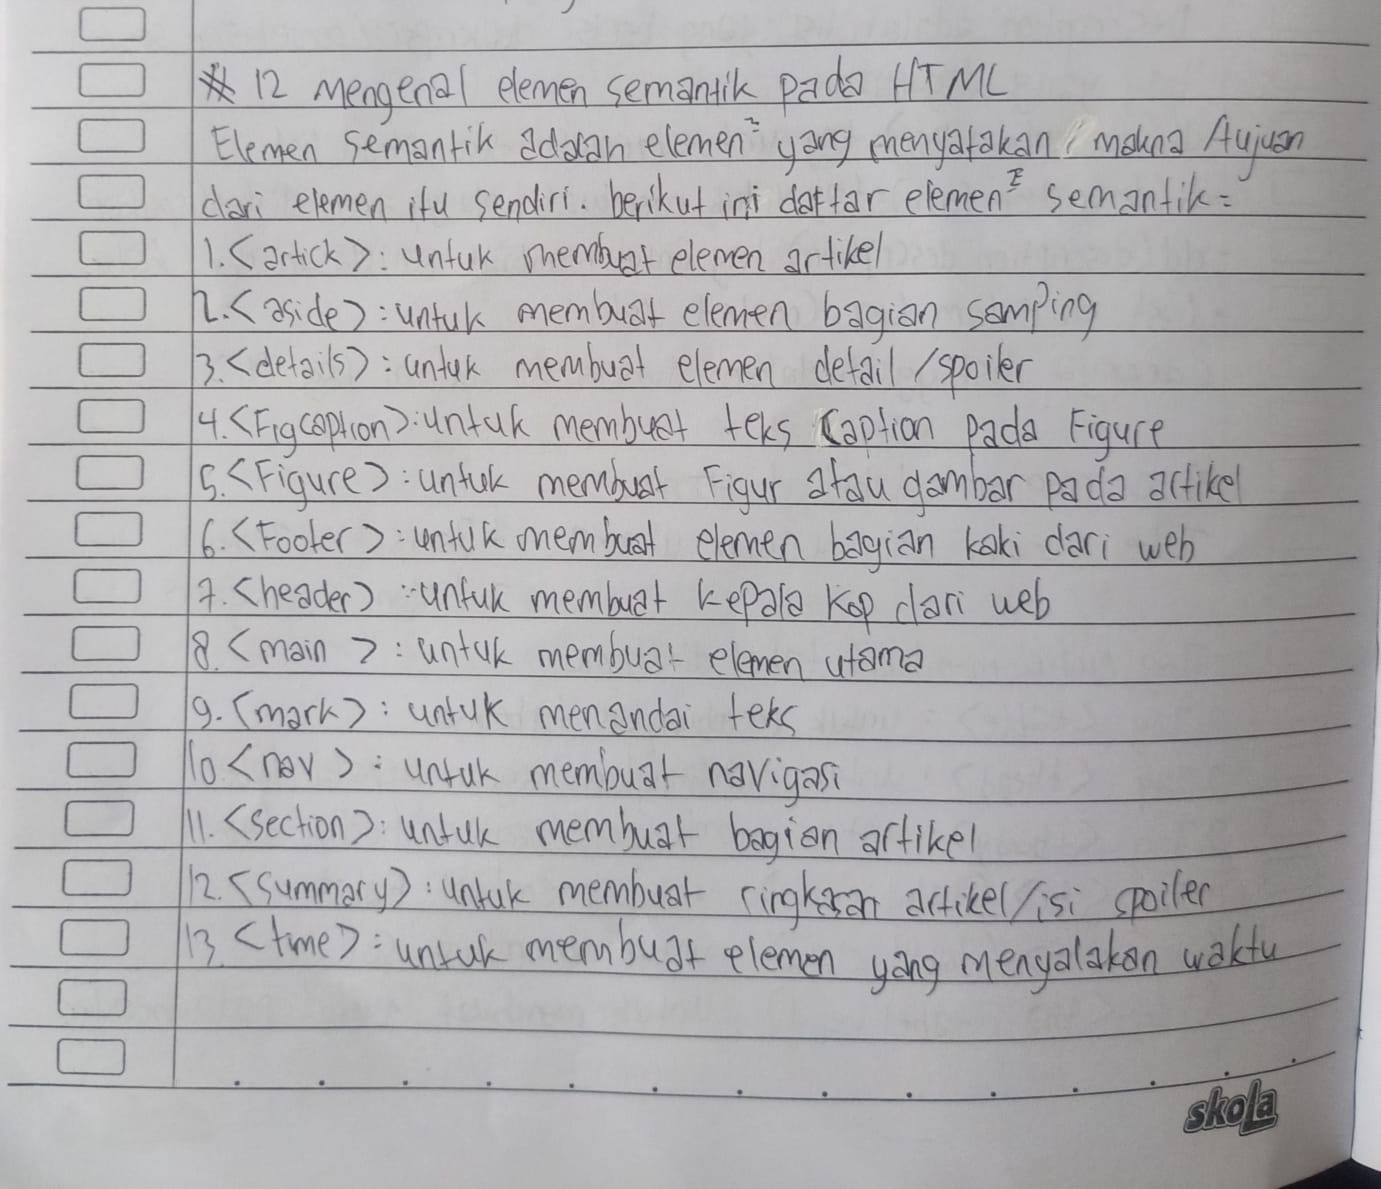 # 12 Mengenal elemen semantik pada HTML
Elemen semantik adalah elemen² yang menyatakan / makna /tujuan
dari elemen itu sendiri. berikut ini daftar elemen² semantik:
1. <artick>: untuk membuat elemen artikel
2. <aside>: untuk membuat elemen bagian samping
3. <details>: untuk membuat elemen detail/spoiler
4. <Figcaption>: untuk membuat teks Caption pada Figure
5. <Figure>: untuk membuat Figur atau gambar pada artikel
6. <Footer>: untuk membuat elemen bagian kaki dari web
7. <header>: untuk membuat kepala Kop dari web
8. <main>: untuk membuat elemen utama
9. <mark>: untuk menandai teks
10 <nav>: untuk membuat navigasi
11. <section>: untuk membuat bagian artikel
12. <summary>: untuk membuat ringkasan artikel/isi spoiler
13. <time>: untuk membuat elemen yang menyatakan waktu
skola